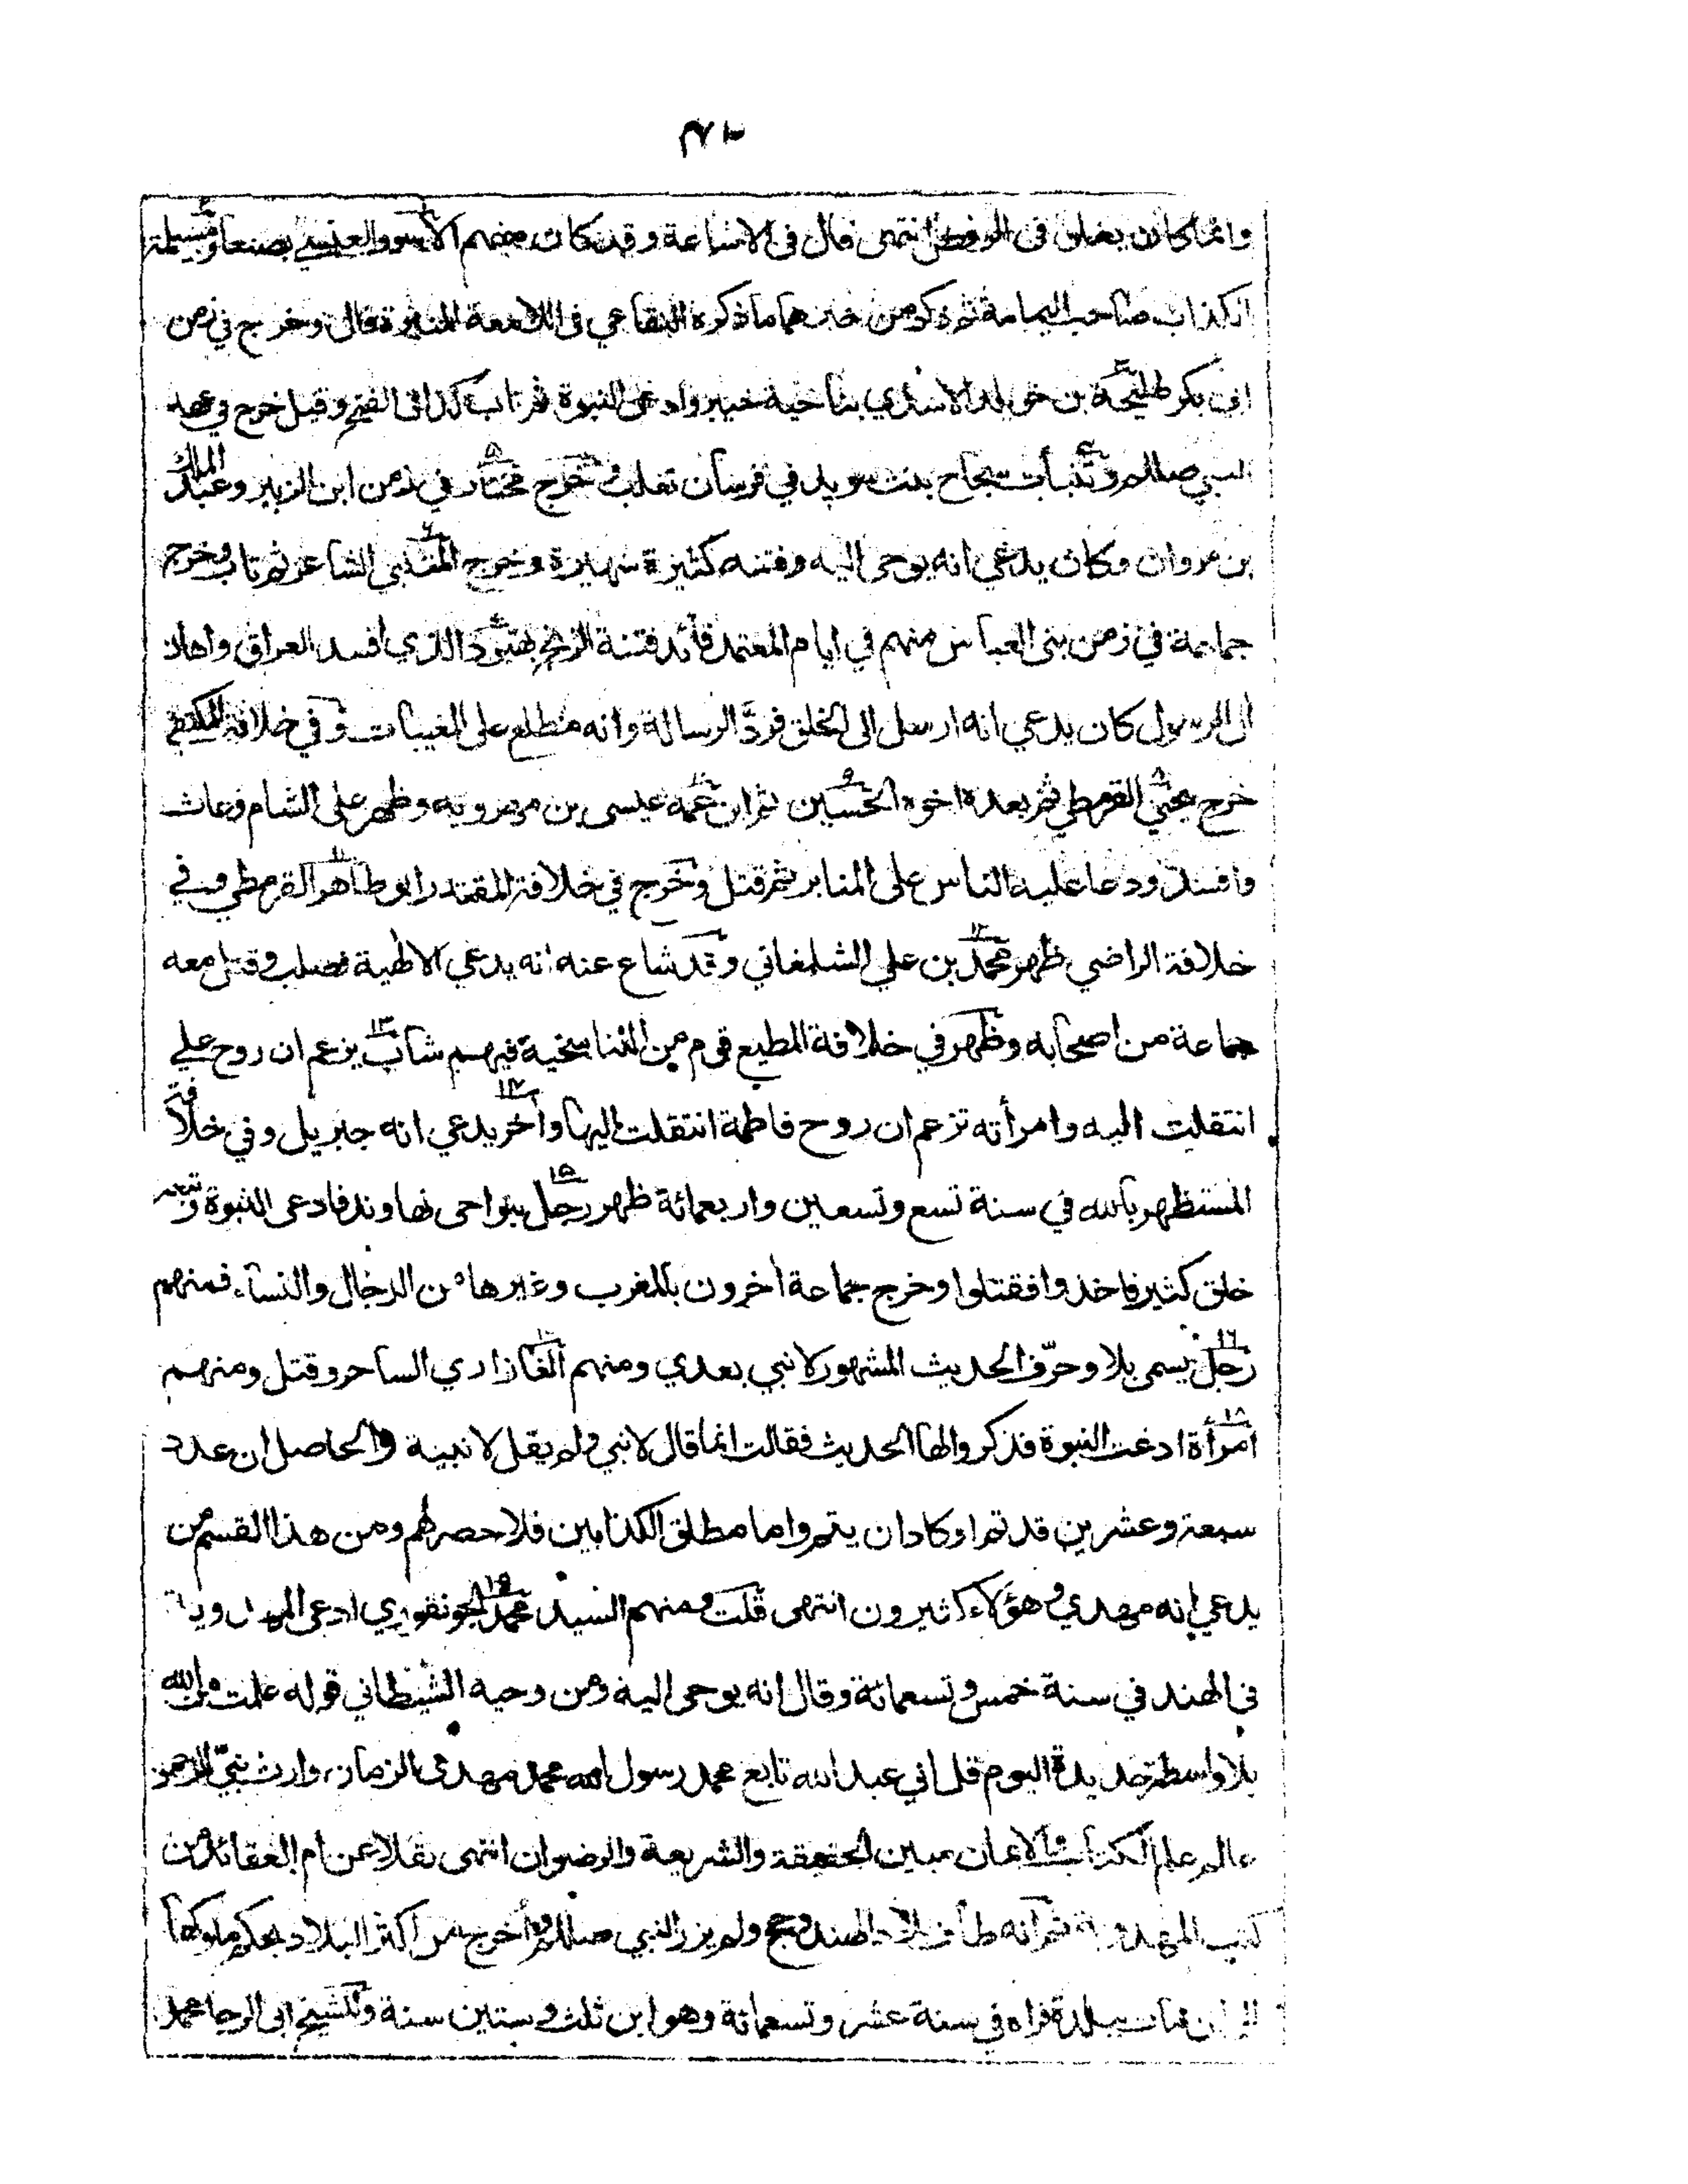 وانما كان يغلق في الرفض انتهى قال في الاشاعة وقد كان منهم الاسود العنسي بصنعا ومسيلمة
الكذاب صاحب اليمامة ثم ذكر من خبرهما ما ذكره البقاعي في اللامعة المنيرة قال وخرج في زمن
ابي بكر طليحة بن خويلد الاسدي بناحية خيبر وادعى النبوة ثم تاب كذا في الفتح وقيل خرج في عهد
النبي صللم وتنبأت سجاح بنت سويد في فرسان تغلب وخرج مختار في زمن ابن الزبير وعبد الملك
بن مروان وكان يدعي انه يوحى اليه وفتنه كثيرة شهيرة وخرج المتنبي الشاعر ثم تاب وخرج
جماعة في زمن بني العباس منهم في ايام المعتمد قائد فتنة الزنج بهبود الذي افسد العراق واهان
ال الرسول كان يدعي انه ارسل الى الخلق فردّ الرسالة وانه مطلع على المغيبات وفي خلافة المكتفي
خرج يحيى القرمطي ثم بعده اخوه الحسين ثم ابن عمه عيسى بن مهرويه وظهر على الشام وعاث
وافسد ودعا عليه الناس على المنابر ثم قتل وخرج في خلافة المقتدر ابو طاهر القرمطي وفي
خلافة الراضي ظهر محمد بن علي الشلمغاني وقد شاع عنه انه يدعي الالهية فصلب وقتل معه
جماعة من اصحابه وظهر في خلافة المطيع قوم من التناسخية فيهم شاب يزعم ان روح علي
انتقلت اليه وامرأته تزعم ان روح فاطمة انتقلت اليها وآخر يدعي انه جبريل وفي خلافة
المستظهر بالله في سنة تسع وتسعين واربعمائة ظهر رجل بنواحي نهاوند فادعى النبوة وتبعه
خلق كثير فاخذوا فقتلوا وخرج جماعة آخرون بالمغرب وغيرها من الرجال والنساء فمنهم
رجل يسمى بلا وحرّف الحديث المشهور لا نبي بعدي ومنهم الغازاري الساحر وقتل ومنهم
امرأة ادعت النبوة فذكروا لها الحديث فقالت انما قال لا نبي ولم يقل لا نبية والحاصل ان عدد
سبعة وعشرين قد تم او كاد ان يتم واما مطلق الكذابين فلا حصر لهم ومن هذا القسم من
يدعي انه مهدي وهؤلاء كثيرون انتهى قلت ومنهم السيد محمد الجونفوري ادعى المهدوية
في الهند في سنة خمس وتسعمائة وقال انه يوحى اليه ومن وحيه الشيطاني قوله علمت من الله
بلا واسطة جديدة اليوم قل اني عبد الله تابع محمد رسول الله محمد مهدي الزمان وارث نبيّ الرحمن
عالم علم الكتاب والايمان مبين الحقيقة والشريعة والرضوان انتهى نقلا عن ام العقائد من
كتب المهدوية ثم انه طاف بلاد الهند وحج ولم يزر النبي صللم وأخرج من اكثر البلاد بحكم ملوكها
الى ان مات ببلدة فراه في سنة عشر وتسعمائة وهو ابن ثلث وستين سنة وللشيخ ابي الرجا محمد